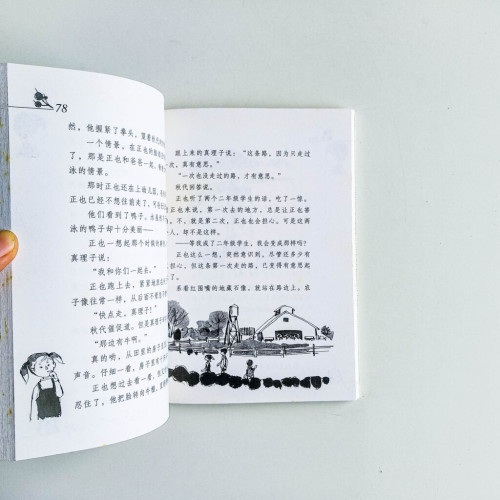 78
然，他握紧了拳头，望着
一个情景，在正也
了，那是正也和爸爸一起，
泳的情景。
那时正也还在上幼儿园，
正也已经不想往前走了，可
他们看到了鸭子。水
泳的鸭子却十分美丽——
正也一想起那个时候的事
真理子说：
“我和你们一起去。”
正也跑上去，紧紧地
子像往常一样，从后面不
“快点走，真理子！”
秋代催促道。但是真理子
“那边有牛啊。”
真的哟，从田里的
声音。仔细一看，房子里
正也想过去看一看，
忍住了，他把脸转向牛棚，
跟上来的真理子说：“这条路，因为只走过
次，真有意思。”
“一次也没走过的路，才有意思。”
秋代回答说。
正也听了两个二年级学生的话，吃了一惊。
正也来说，第一次去的地方，总是让正也害
不，就是第二次，正也也会担心。可是这两
人，却不是这样。
——等我成了二年级学生，我会变成那样吗？
正也这么一想，突然意识到，尽管还多少有
担心，但这条第一次走的路，已变得有意思起
系着红围嘴的地藏石像，就站在路边上。衣